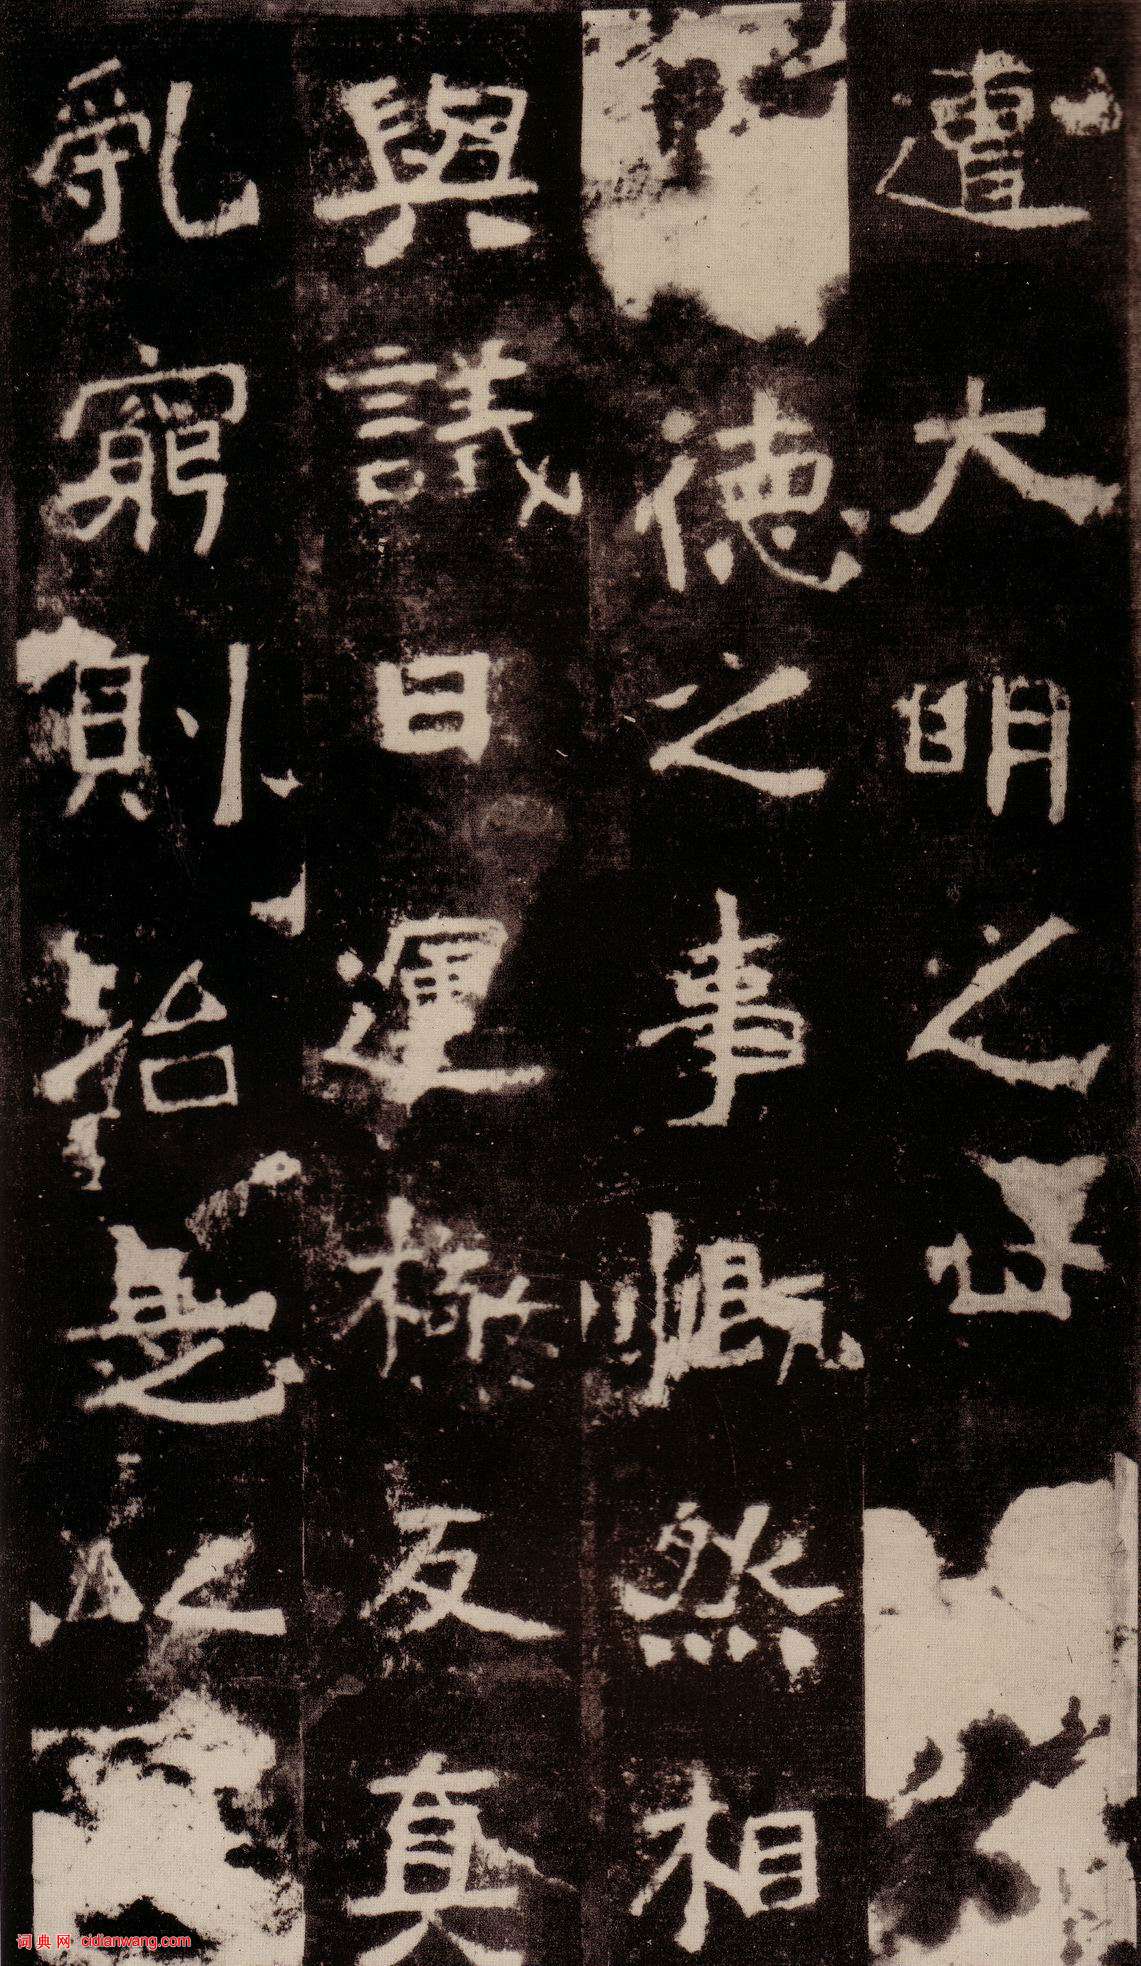 遭大明之世
德之事慨然相
與議曰運極反真
亂窮則治是以
词典网 cidianwang.com